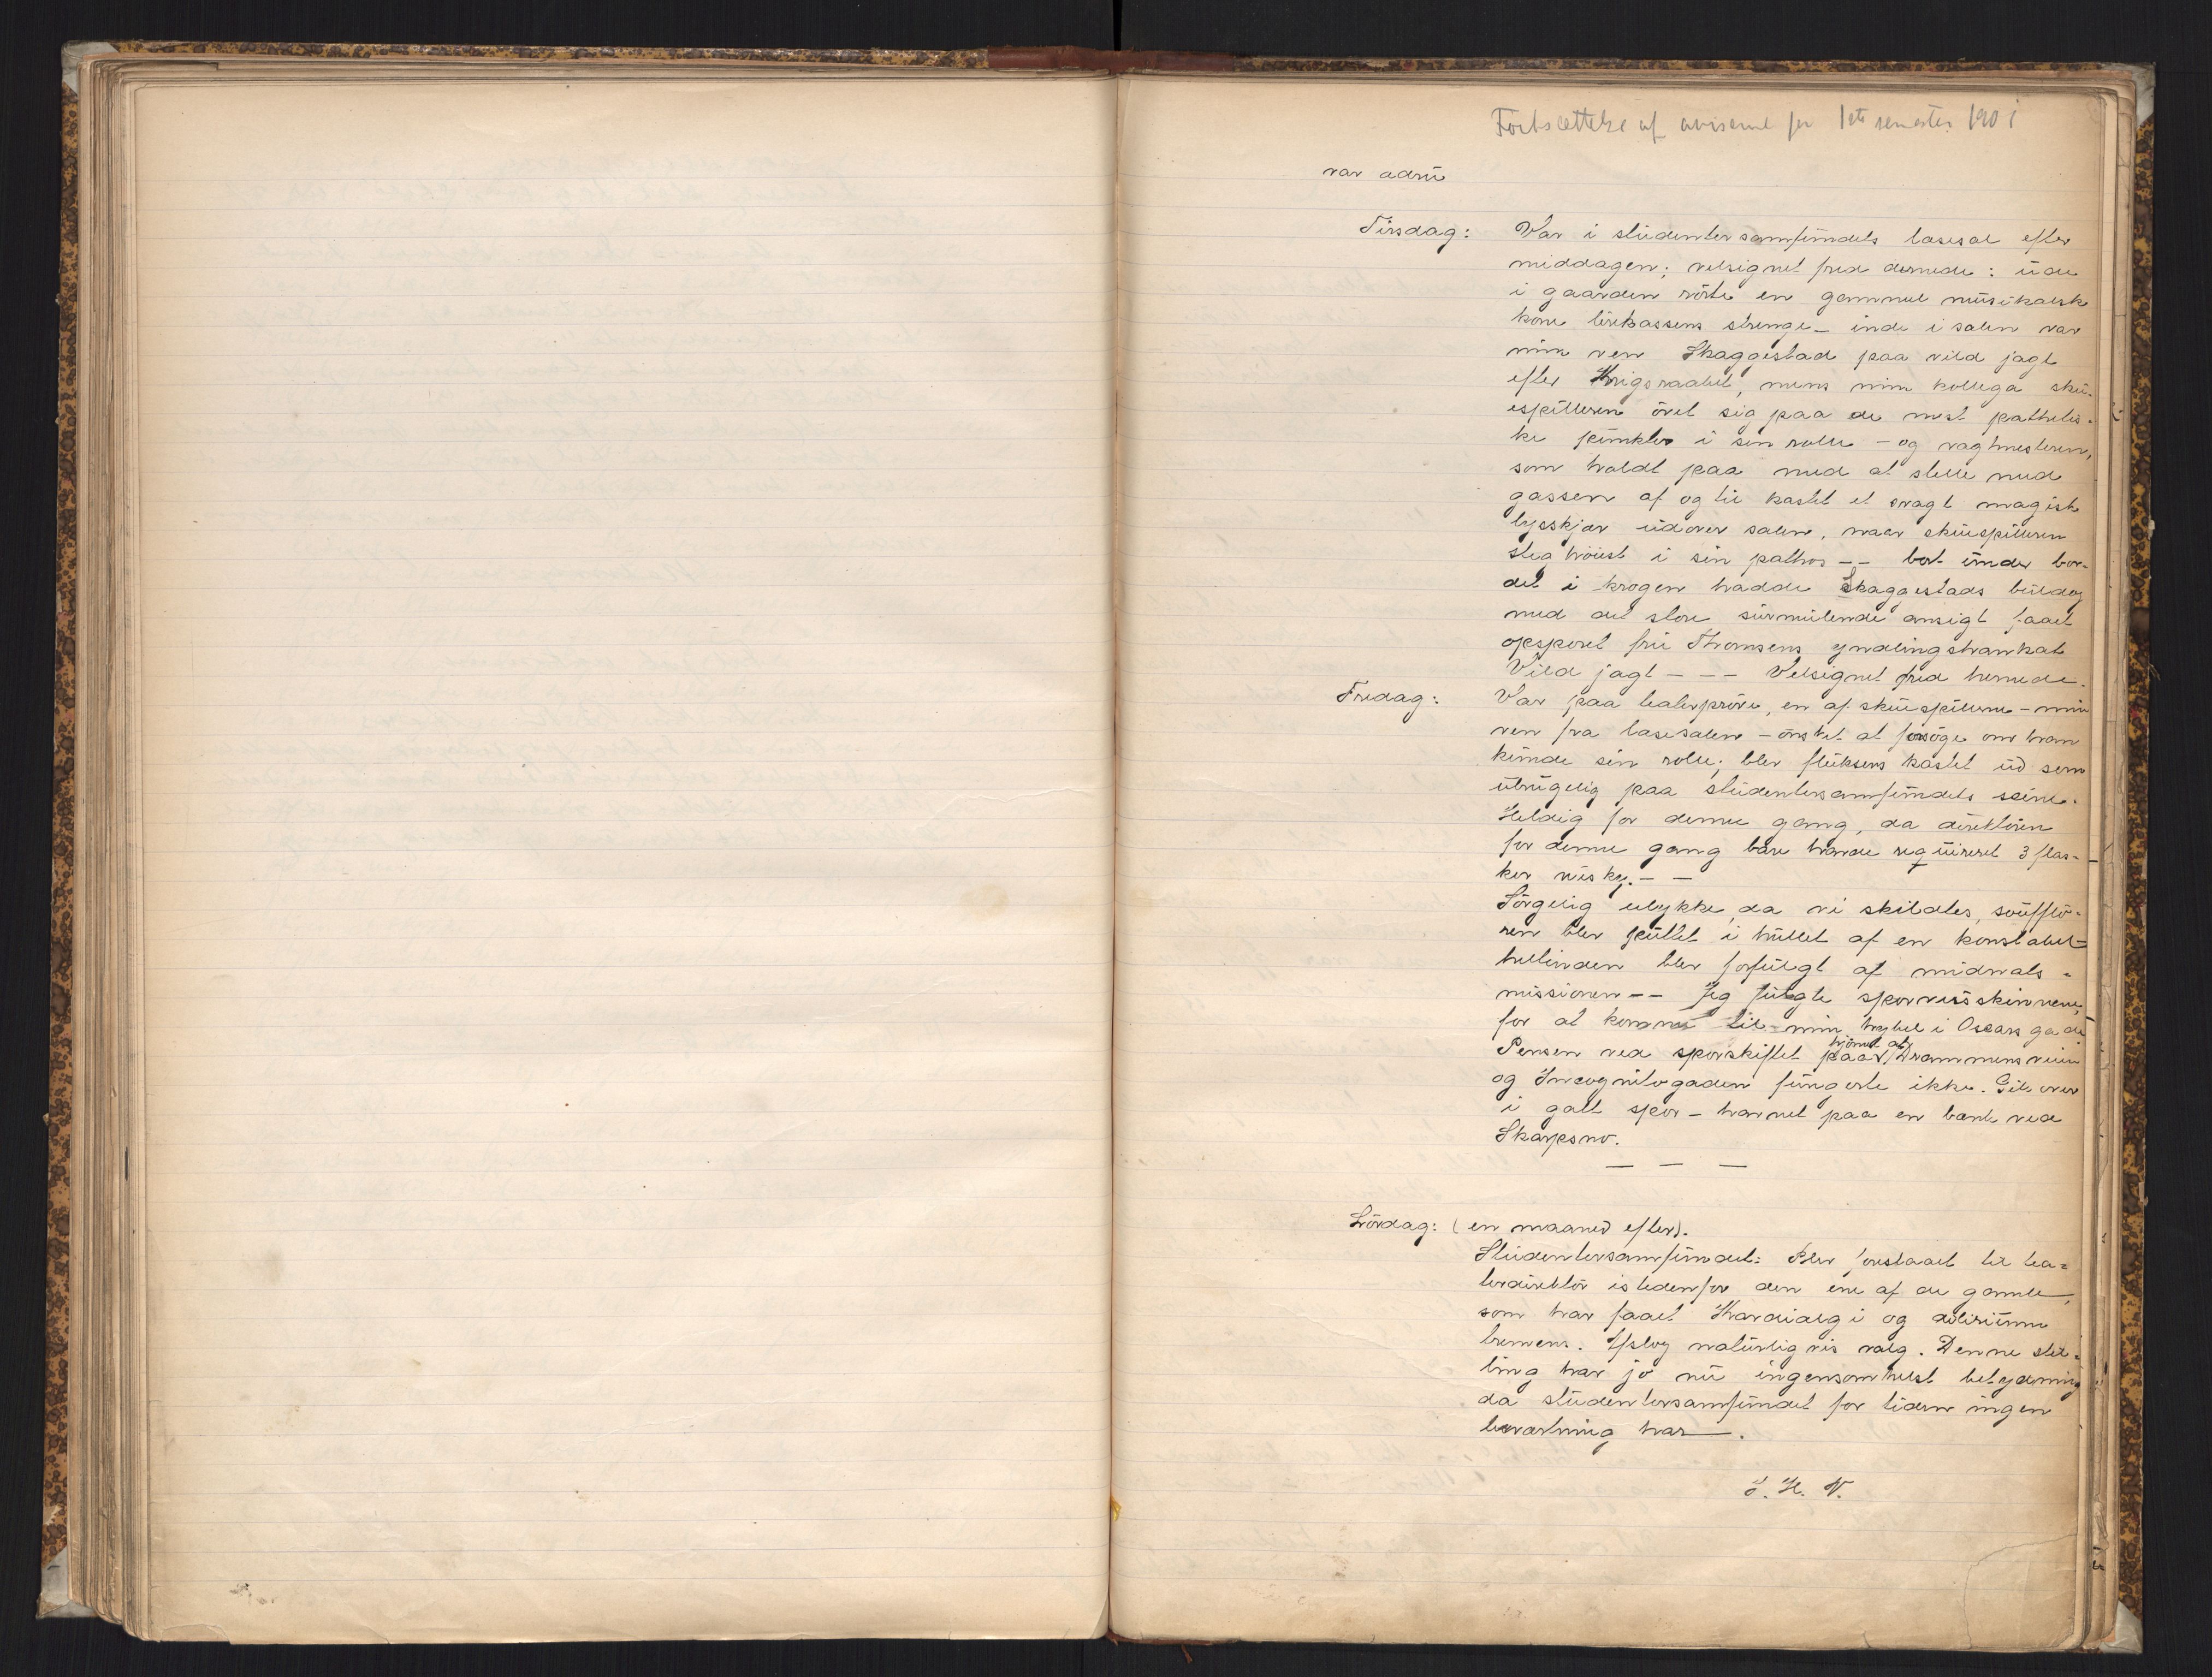 Fortsættelse af aviserne for 1ste semester 1901
var adrü
Tirsdag: Var i studentersamfundets læsesal efter
middagen; velsignet fred dernede: ude
i gaarden rörte en gammel musikalsk
kone lirekassens strenge – inde i salen var
min ven Skaggestad paa vild jagt
efter Krigsraabet, mens min kollega sku-
espilleren övet sig paa de mest patheti-
ke punkter i sin rolle – og vagtmesteren,
som holdt paa med at stelle med
gassen af og til kastet et svagt magisk
lysskjær udover salen, naar skuespilleren
steg höiest i sin pathos – – bort under bor-
det i krogen hadde Skaggestads buldog
med det store surmulende ansigt faaet
opsporet fru Thomsens yndlingshankat
Vild jagt – – – Velsignet fred hernede.
Fredag: Var paa teaterpröve, en af skuespillerne – min
ven fra læsesalen – önsket at forsöge om han
kunde sin rolle; blev fluksens kastet ud som
ubrugelig paa studentersamfundets scene.
Heldig for denne gang, da direktören
for denne gang bare havde requireret 3 flas-
ker visky. – –
Sörgelig ulykke, da vi skildtes, soufflö-
ren blev puttet i hullet af en konstabel –
heltinden blev forfulgt af midnats-
missionen – – Jeg fulgte sporveisskinnene,
for at komme til min hybel i Oscars gade
Pensen ved sporskiftet paa hjörnet af Drammensveien
og Incognitogaden fungerte ikke. Gik over
i galt spor – havnet paa en bænk ved
Skarpsno.
– – –
Lördag: (en maaned efter).
Studentersamfundet: Blev foreslaaet til tea-
terdirektör istedenfor den ene af de gamle,
som har faaet Kardialgi og delirium
tremens. Afslog naturligvis valg. Denne stil-
ling har jo nu ingensomhelst betydning
da studentersamfundet for tiden ingen
bevertning har.
J. H. N.